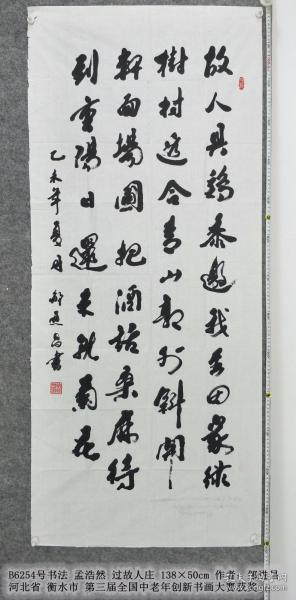 故人具鷄黍邀我至田家緑
樹村边合青山郭外斜開
軒面場圃把酒話桑麻待
到重陽日還来就菊花
乙未年夏月 进昌書
B6254号书法 孟浩然 过故人庄 138×50cm 作者：进昌
河北省 衡水市 第三届全国中老年创新书画大赛获奖